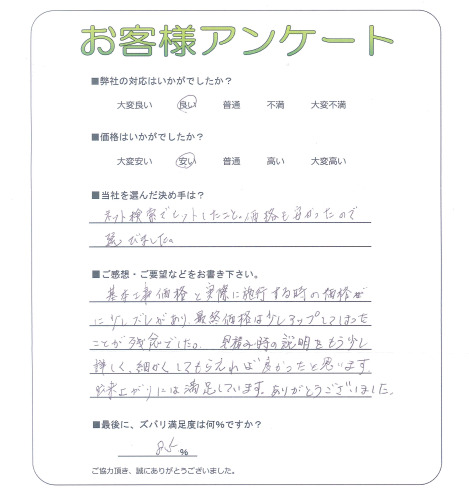 お客様アンケート
■弊社の対応はいかがでしたか?
大変良い 良い 普通 不満 大変不満
■価格はいかがでしたか?
大変安い 安い 普通 高い 大変高い
■当社を選んだ決め手は?
ネット検索でヒットしたこと。価格も安かったので
選びました。
■ご感想・ご要望などをお書き下さい。
基本工事価格と実際に施行する時の価格
に少しズレがあり、最終価格は少しアップしてしまった
ことが残念でした。見積り時の説明をもう少し
詳しく、細かくしてもらえれば良かったと思います
出来上がりには満足しています。ありがとうございました。
■最後に、ズバリ満足度は何%ですか?
85 %
ご協力頂き、誠にありがとうございました。